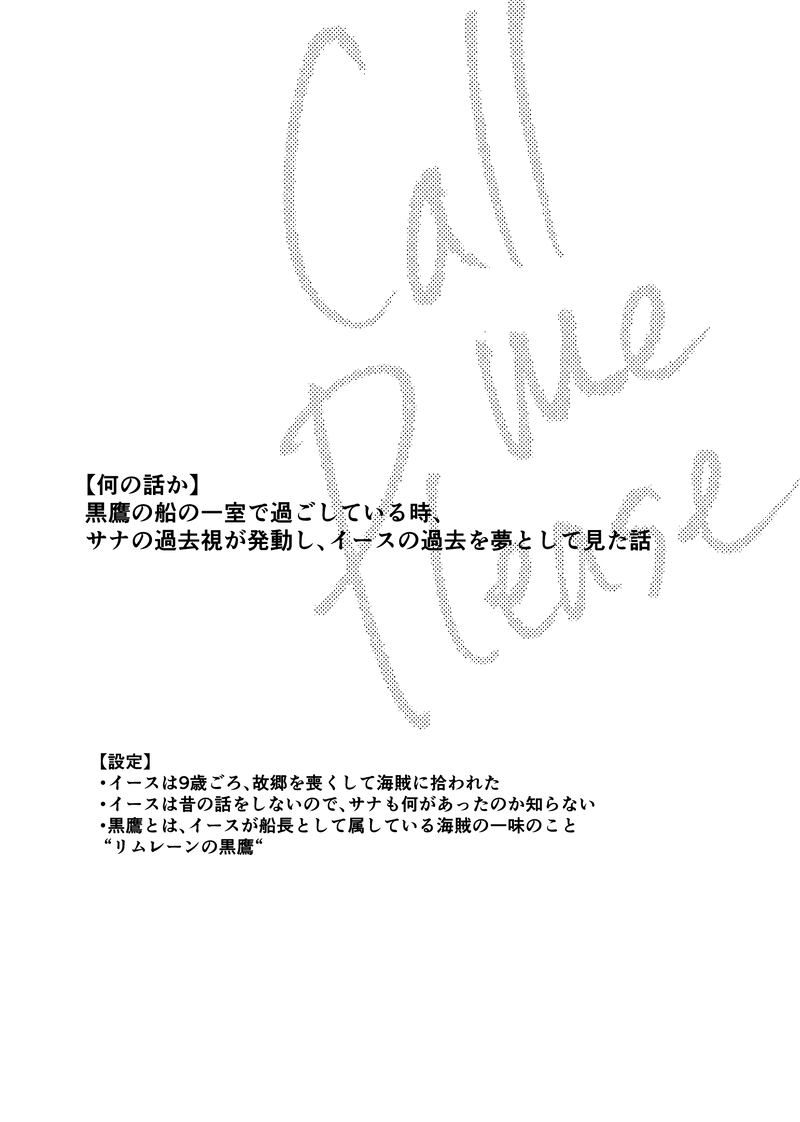 Call
Me
Please
【何の話か】
黒鷹の船の一室で過ごしている時、
サナの過去視が発動し、イースの過去を夢として見た話
【設定】
・イースは9歳ごろ、故郷を喪くして海賊に拾われた
・イースは昔の話をしないので、サナも何があったのか知らない
・黒鷹とは、イースが船長として属している海賊の一味のこと
“リムレーンの黒鷹“